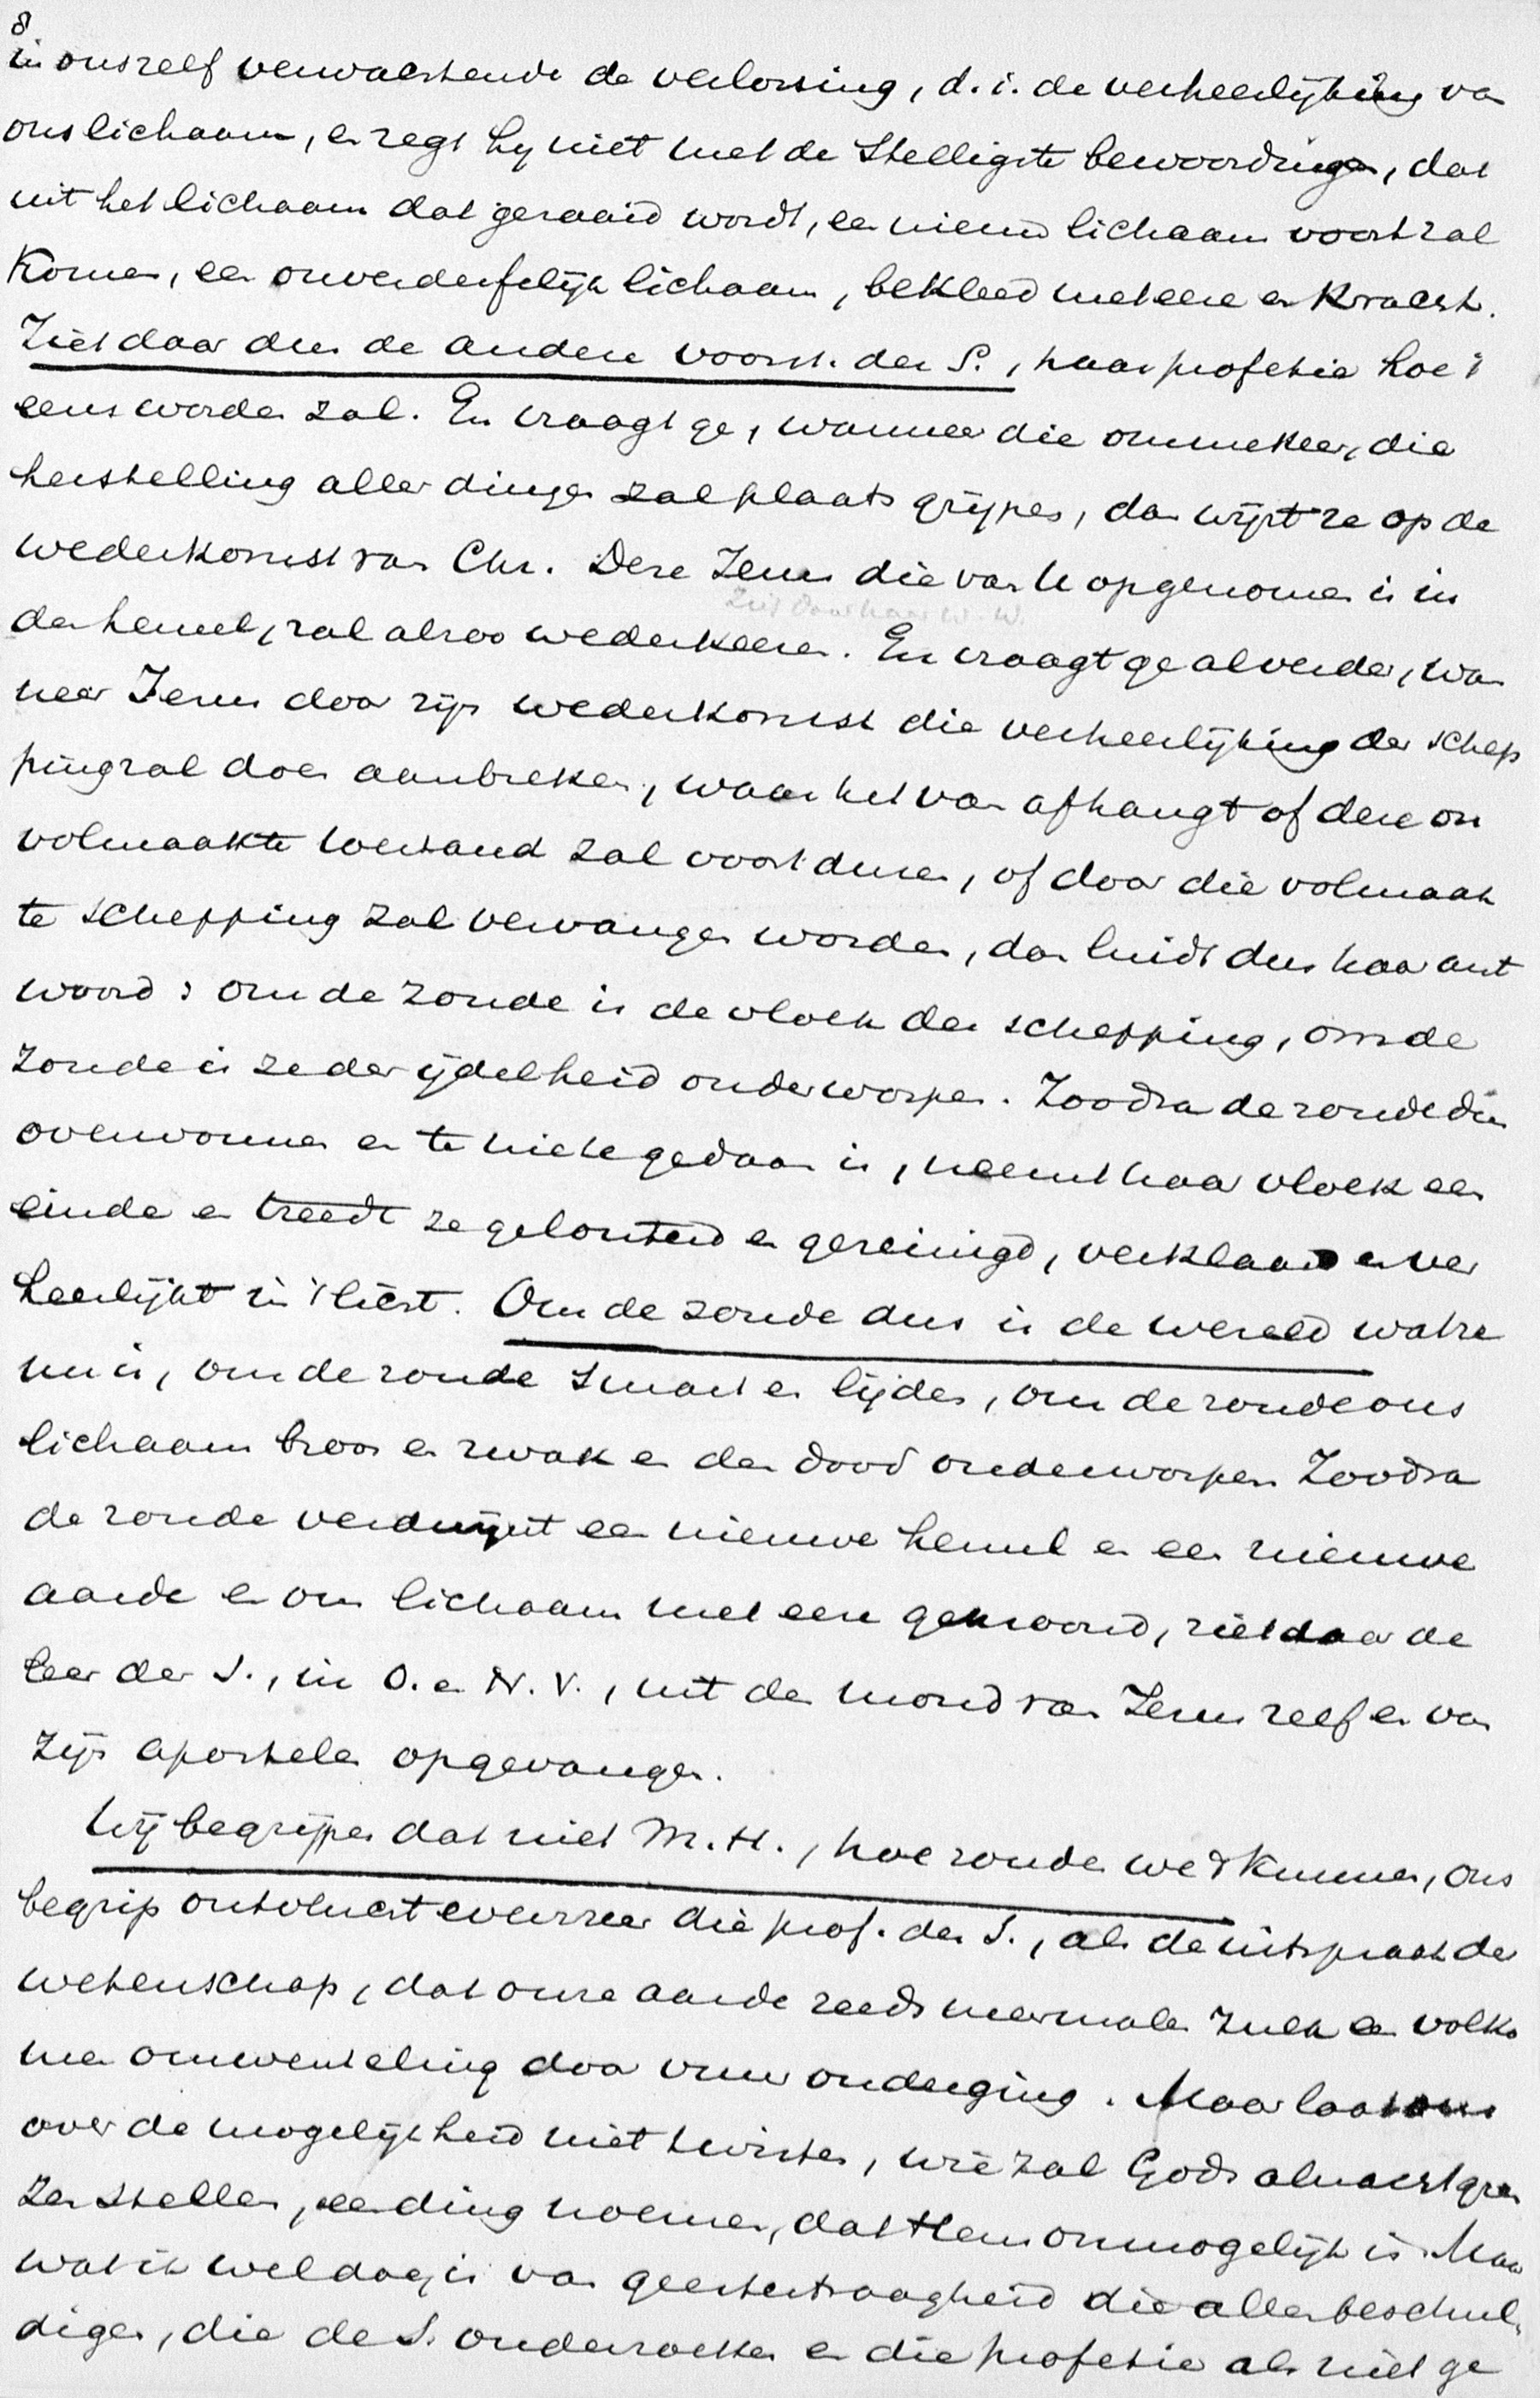 8
in onszelf verwachtende de verlossing, d.i. de verheerlijking van
ons lichaam, en zegt hij niet met de stelligste bewoordingen, dat
uit het lichaam dat gezaaid wordt, een nieuw lichaam voort zal
komen, een onverderfelijk lichaam, bekleed met eere en kracht.
Ziet daar dus de andere voorst. der S., haar profetie hoe 't
eens worden zal. En vraagt ge, wanneer die ommekeer, die
herstelling aller dingen zal plaats grijpen, dan wijst ze op de
wederkomst van Chr. Deze Jezus die van U opgenomen is in
den hemel, zal alzoo wederkeeren. En vraagt ge al verder, wan
neer Jezus door zijn wederkomst die verheerlijking der schep
ping zal doen aanbreken, waar het van afhangt of deze on
volmaakte toestand zal voortduren, of door die volmaak
te schepping zal vervangen worden, dan luidt dus haar ant
woord: om de zonde is de vloek der schepping, om de
zonde is ze der ijdelheid onderworpen. Zoodra de zonde dus
overwonnen en te niete gedaan is, neemt haar vloek een
einde en treedt ze gelouterd en gereinigd, verklaard en ver
heerlijkt in 't licht. Om de zonde dus is de wereld wat ze
nu is, om de zonde smart en lijden, om de zonde ons
lichaam broos en zwak en den dood onderworpen. Zoodra
de zonde verdwijnt een nieuwe hemel en een nieuwe
aarde en ons lichaam met eere gekroond, ziet daar de
leer der S., in O. en N.V., uit den mond van Jezus zelf en van
zijn apostelen opgevangen.
Wij begrijpen dat niet M.H., hoe zouden we 't kunnen, ons
begrip ontvlucht evenzeer die prof. der S., als de uitspraak der
wetenschap, dat onze aarde reeds meermalen zulk een volko
men omwenteling door vuur onderging. Maar laat ons
over de mogelijkheid niet twisten, wie zal Gods almacht gren
zen stellen, een ding noemen, dat Hem onmogelijk is. Maar
wat ik wel doe, is van geestestraagheid die allen beschul
digen, die de S. onderzoeken en die profetie als niet ge